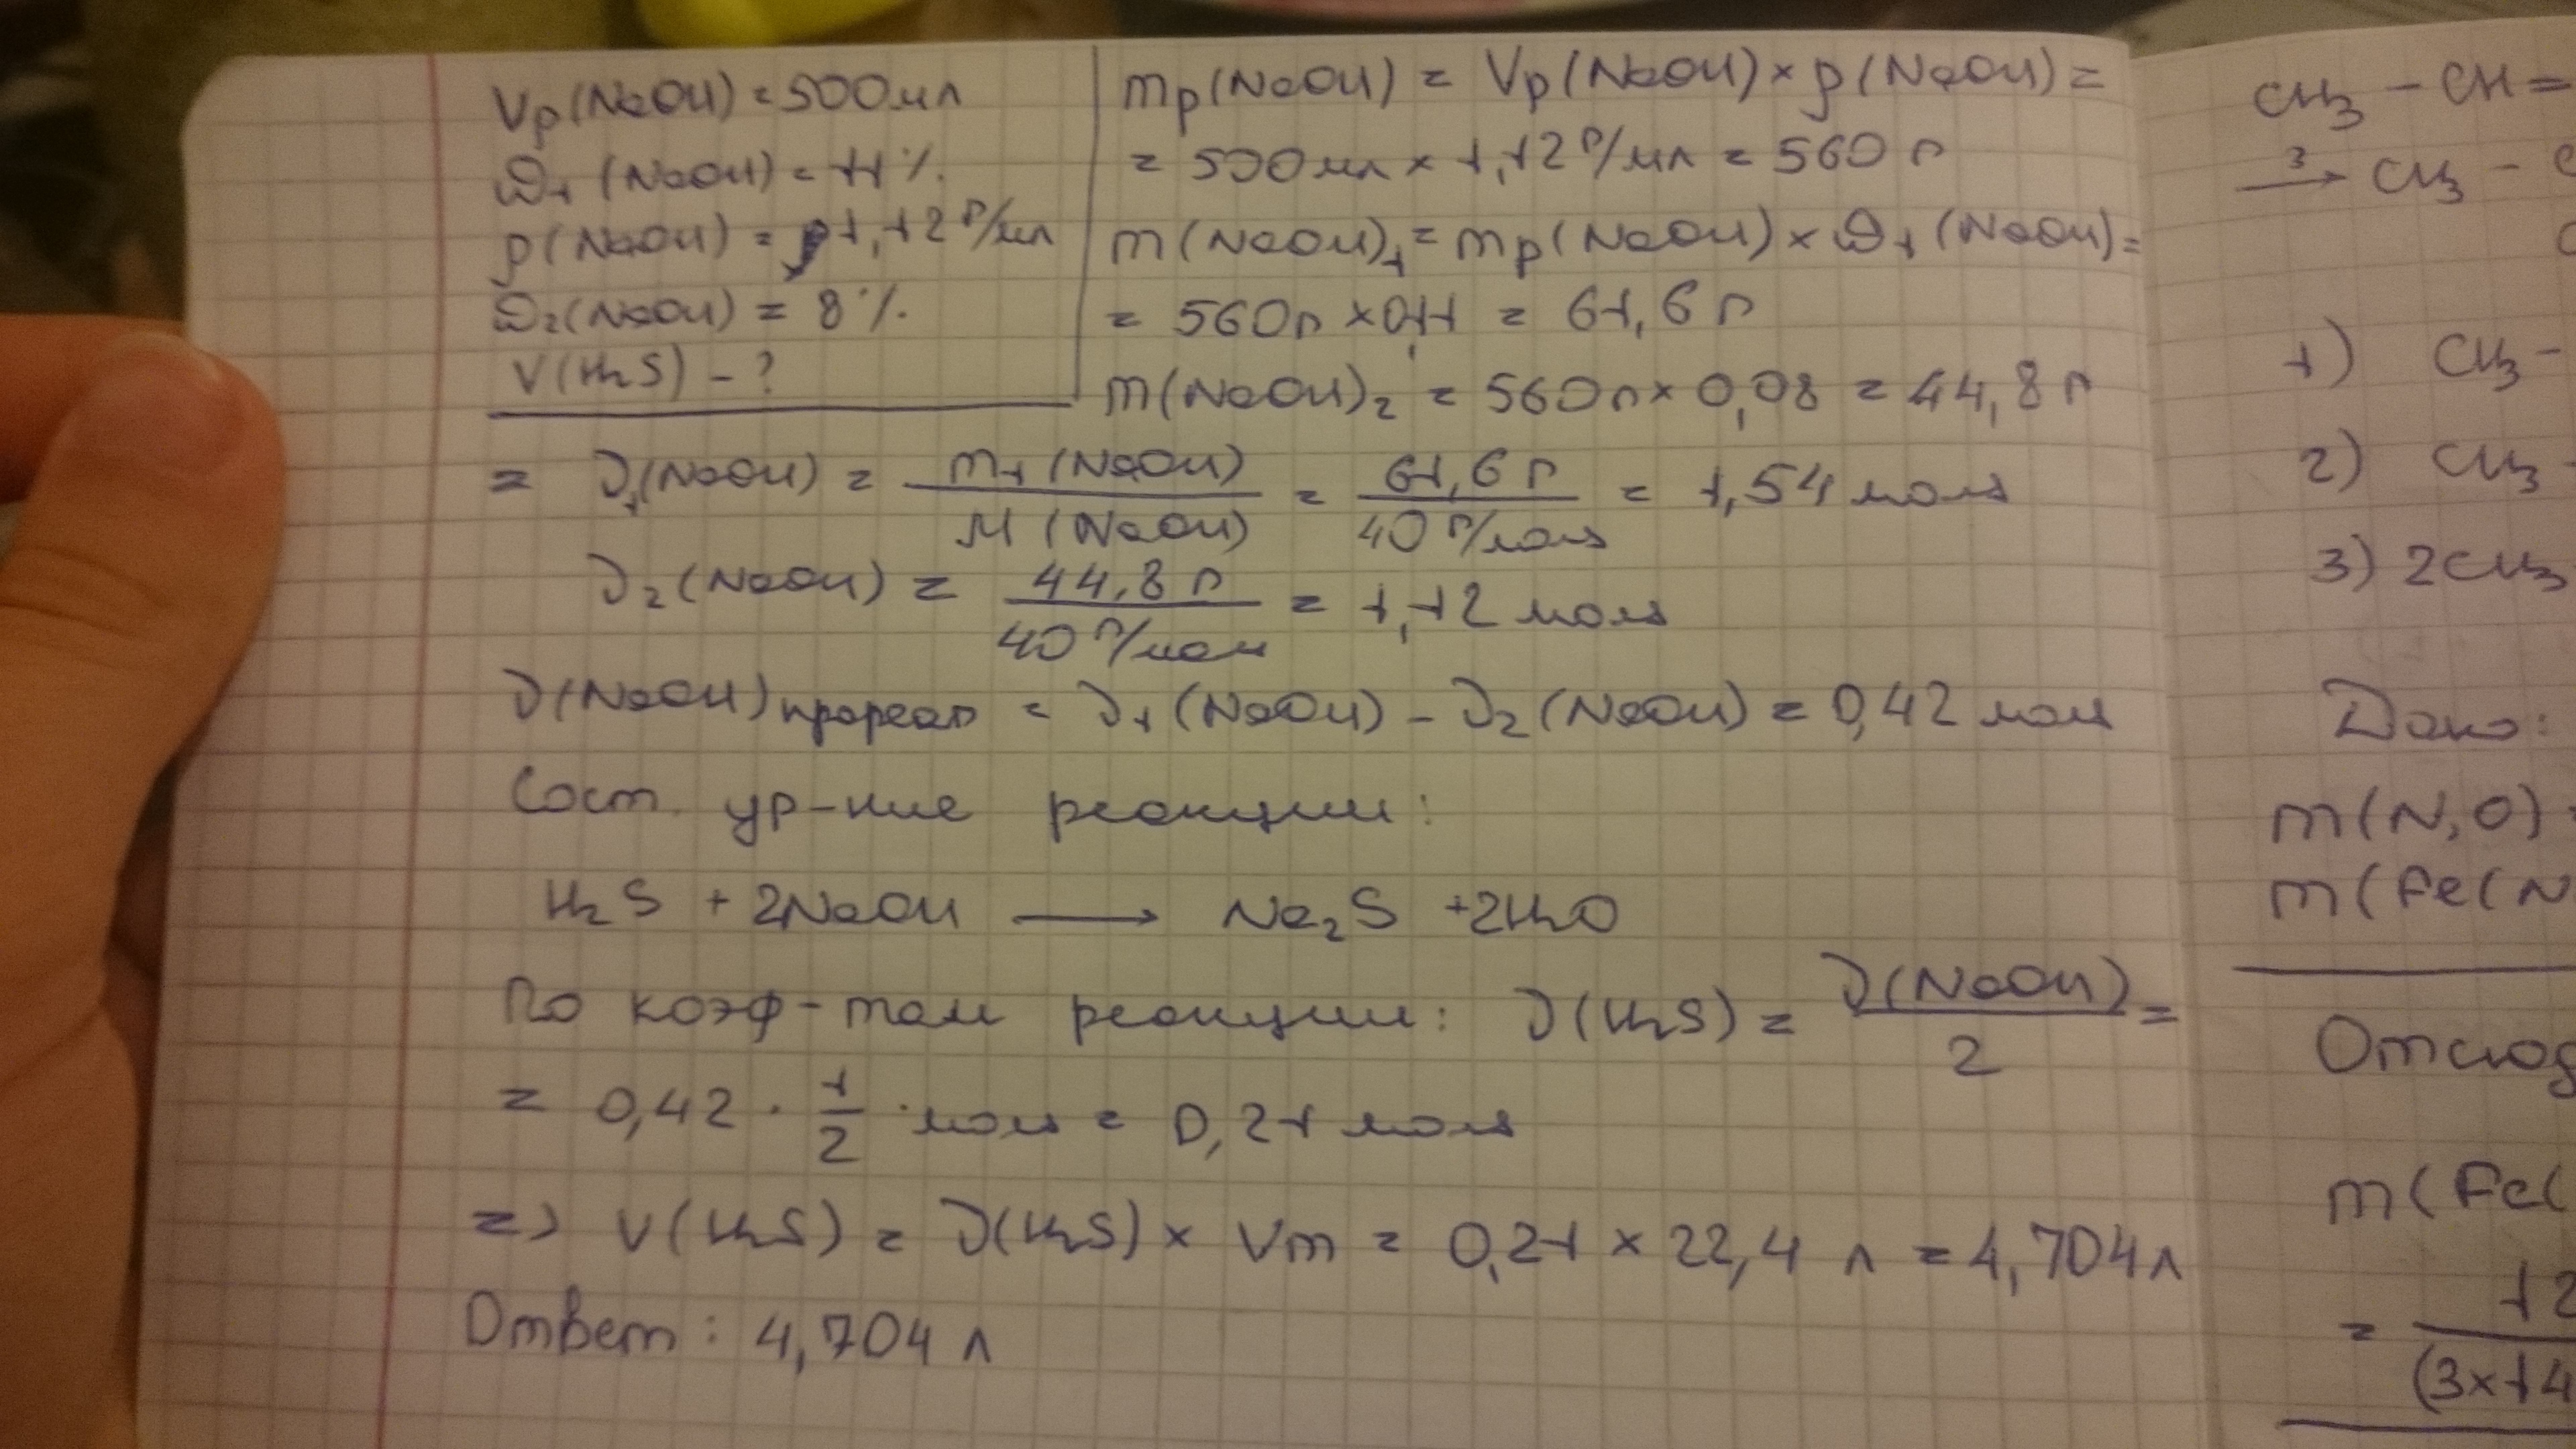 Vр(NaOH) = 500 мл
ω₁ (NaOH) = 11 %.
ρ(NaOH) = 1,12 г/мл
ω₂(NaOH) = 8 %.
V(H₂S) - ?
mр(NaOH) = Vр(NaOH) × ρ(NaOH) =
= 500 мл × 1,12 г/мл = 560 г
m(NaOH)₁ = mр(NaOH) × ω₁(NaOH) =
= 560г × 0,11 = 61,6 г
m(NaOH)₂ = 560г × 0,08 = 44,8 г
= ν₁(NaOH) = m₁(NaOH) / M(NaOH) = 61,6 г / 40 г/моль = 1,54 моль
ν₂(NaOH) = 44,8 г / 40 г/моль = 1,12 моль
ν(NaOH)прореаг = ν₁(NaOH) - ν₂(NaOH) = 0,42 моль
Сост. ур-ние реакции:
H₂S + 2NaOH ⟶ Na₂S + 2H₂O
По коэф-там реакции: ν(H₂S) = ν(NaOH) / 2 =
= 0,42 · 1/2 · моль = 0,21 моль
=> V(H₂S) = ν(H₂S) × Vm = 0,21 × 22,4 л = 4,704л
Ответ: 4,704 л
CH₃ - CH =
3 ⟶ CH₃ -
1) CH₃ -
2) CH₃ -
3) 2CH₃
Дано:
m(N,O)
m(Fe(N
Отсюд
m(Fe(
= 12 / (3×14